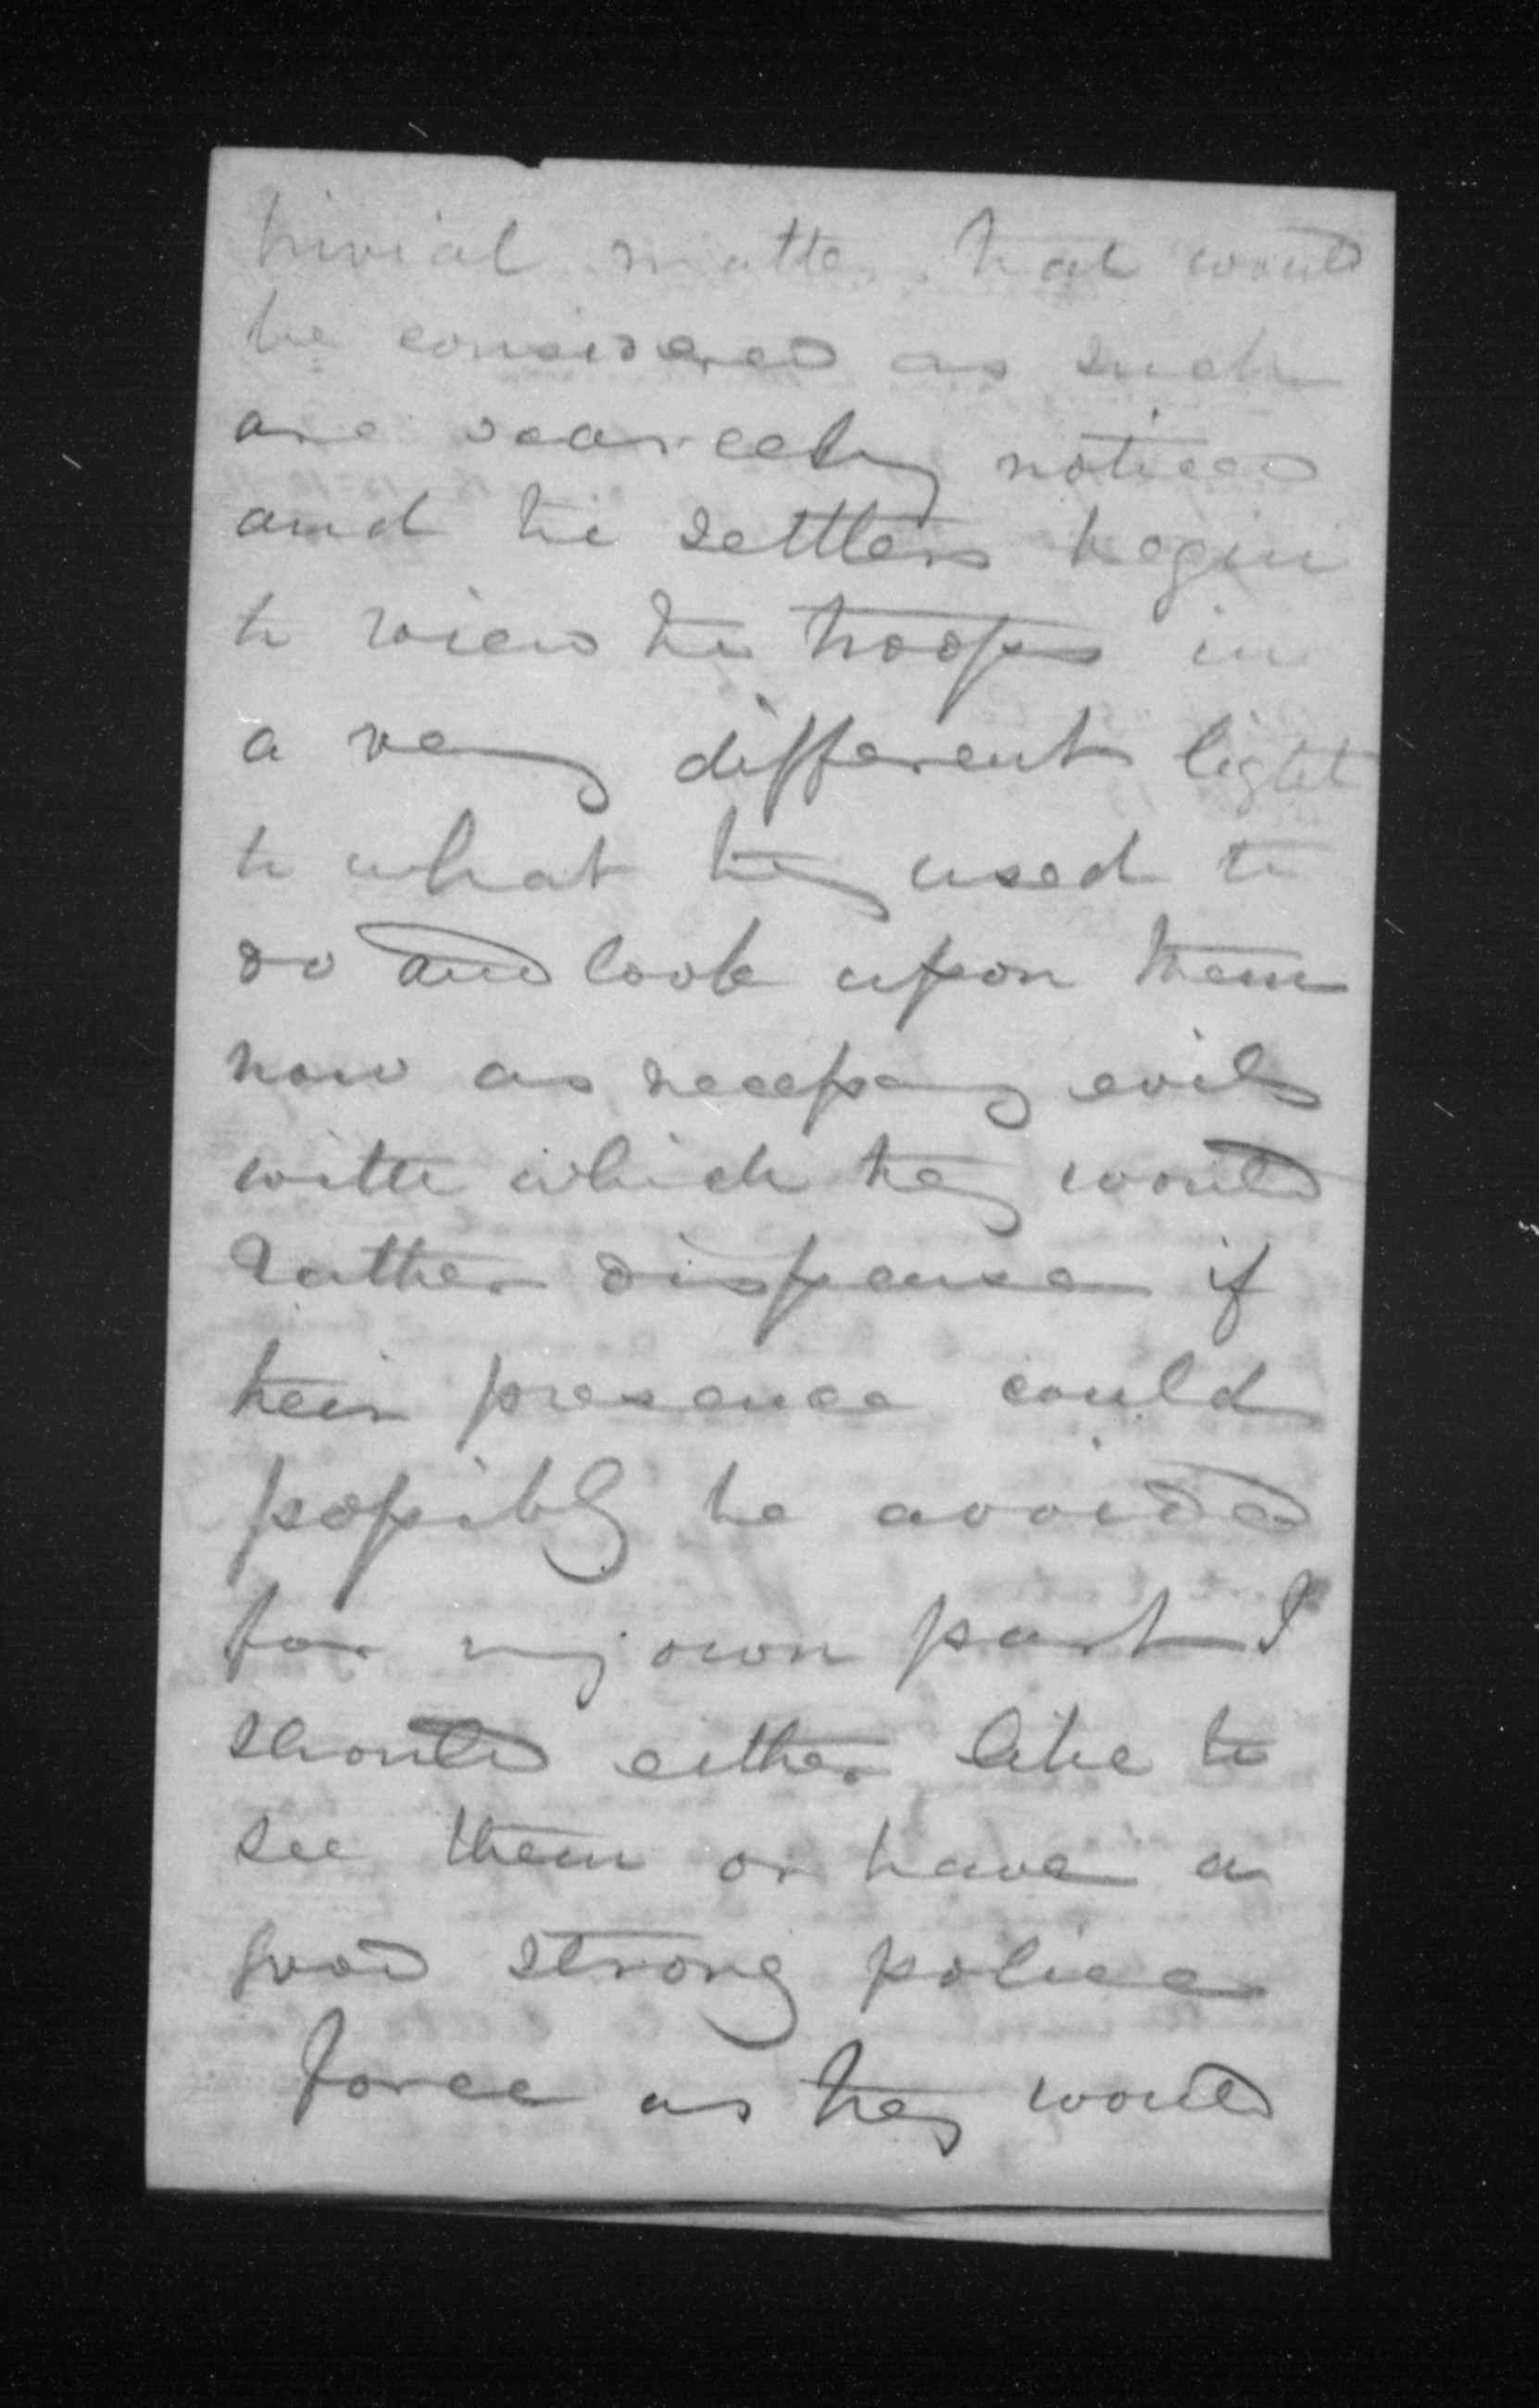 trivial matters that would
be considered as such
are scarcely noticed
and the settlers begin
to view the troops in
a very different light
to what they used to
do and look upon them
now as necessary evils
with which they would
rather dispense if
their presence could
possibly be avoided
for my own part I
should either like to
see them or have a
good strong police
force as they would